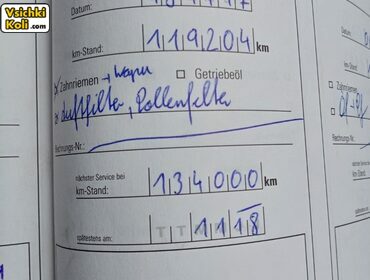 Vsichki
Koli.com
Datum:
km-Stand: 119204 km
Zahnriemen → □ Getriebeöl
Luftfilter, Pollenfilter
Rechnungs-Nr.:
nächster Service bei
km-Stand: 134000 km
spätestens am: T T 1 1 1 8
Zahnriemen
Rechnungs-Nr.
nächster Se
km-Stand:
spätestens